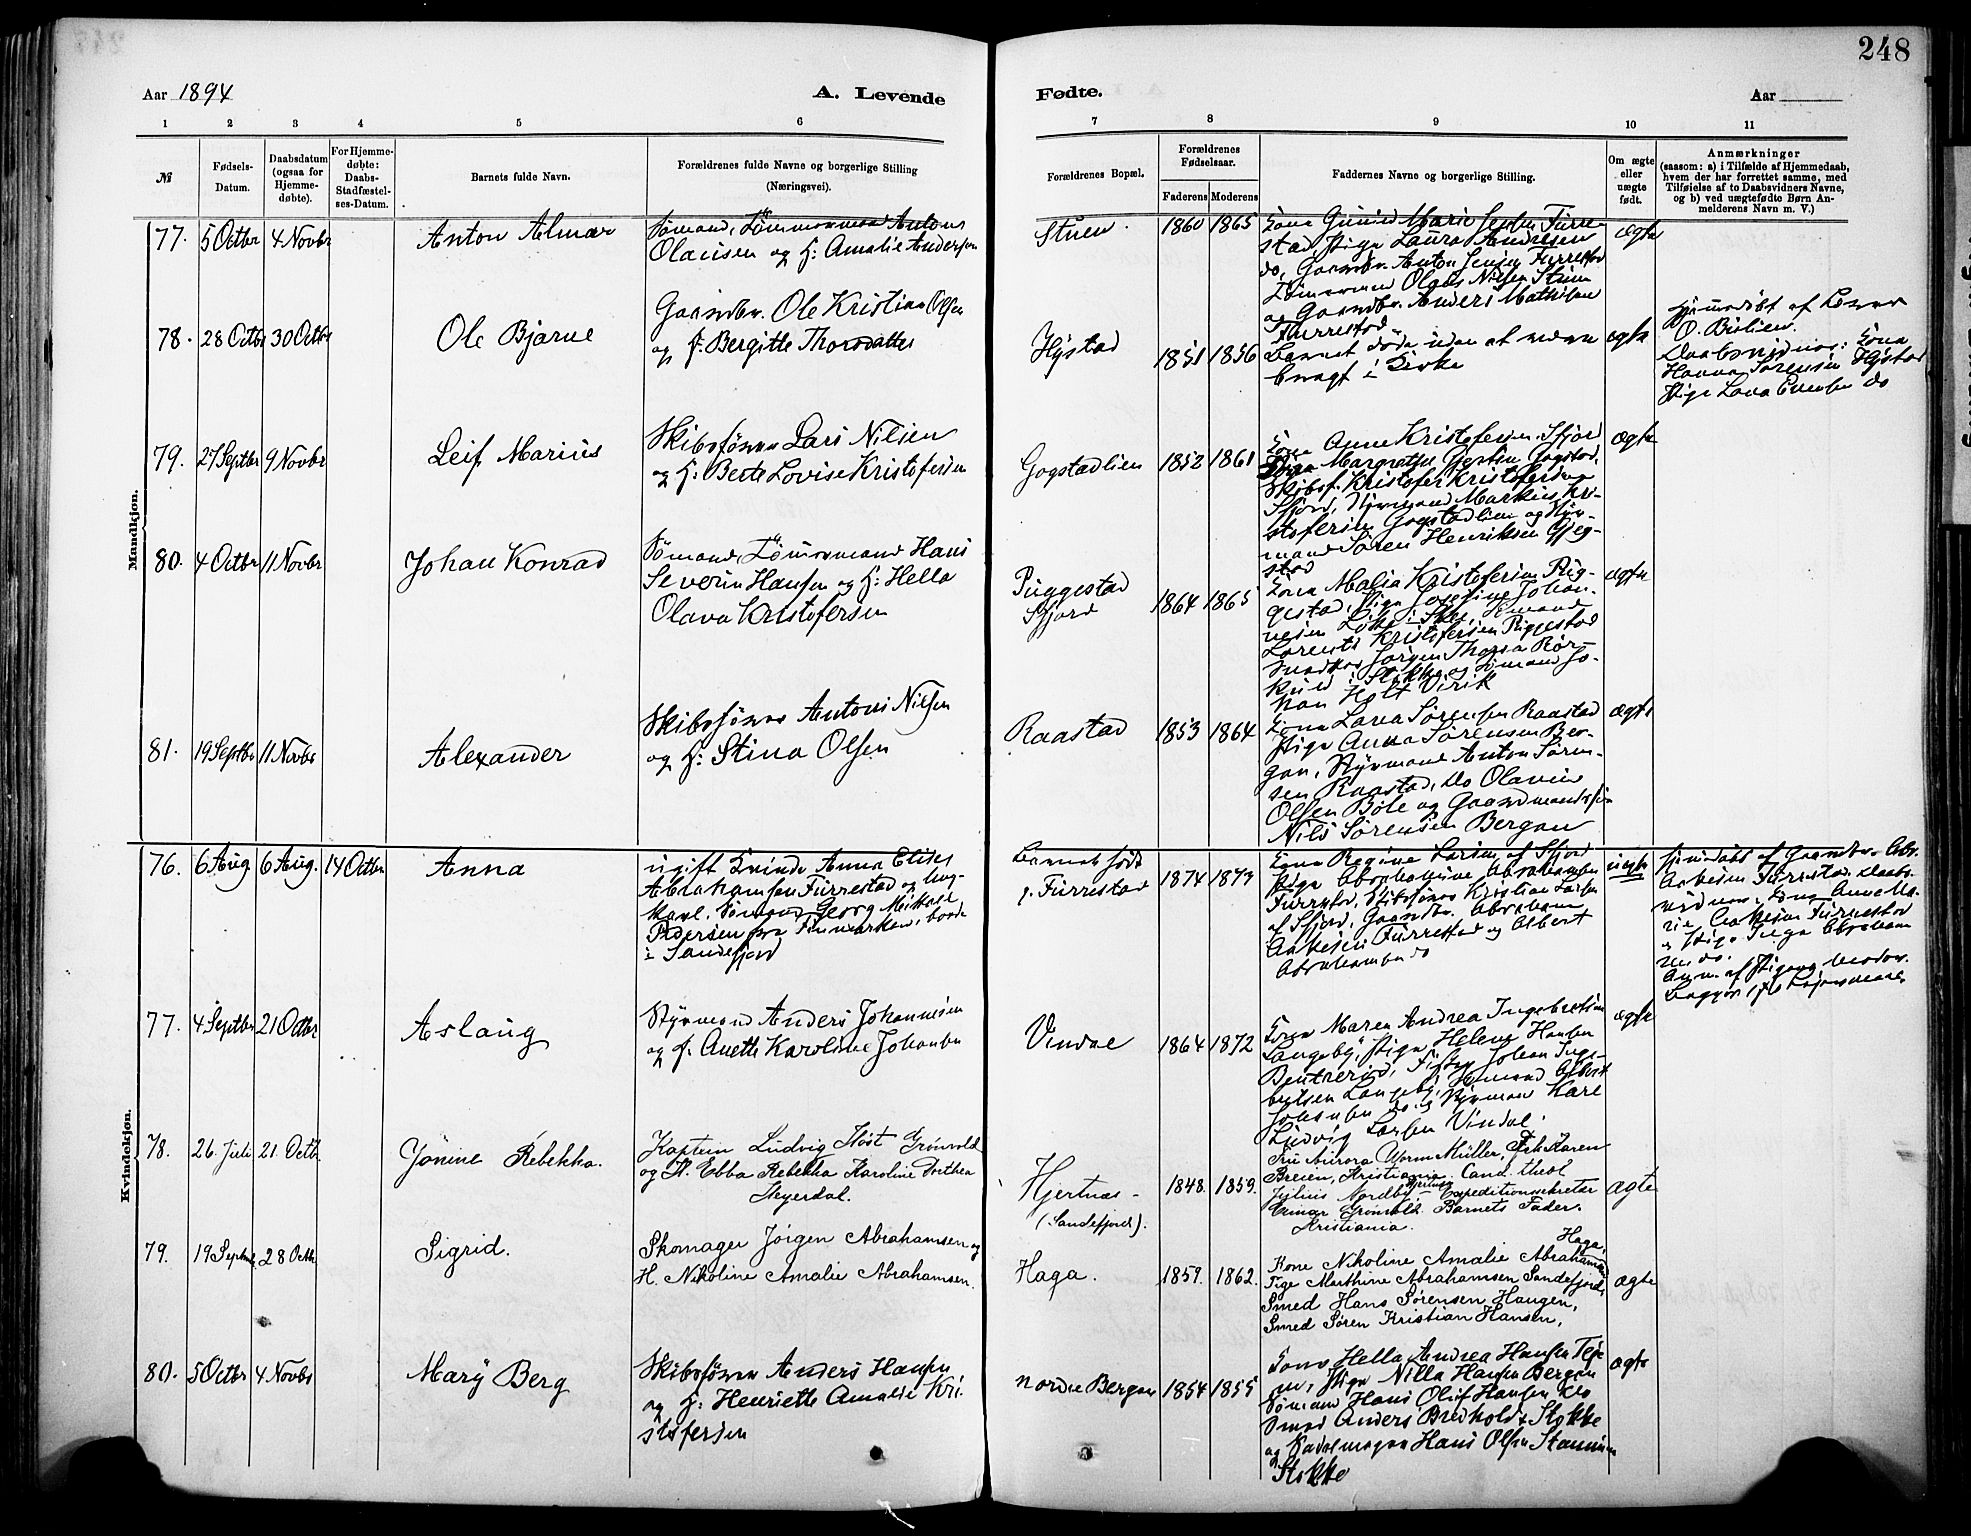 248
Aar 1894
A. Levende
Fødte.
Aar
1 2 3 4 5 6
7 8 9 10 11
№
Fødsels-
Datum.
Daabsdatum
(ogsaa for
Hjemme-
døbte).
For Hjemme-
døbte:
Daabs-
Stadfæstel-
ses-Datum.
Barnets fulde Navn.
Forældrenes fulde Navne og borgerlige Stilling
(Næringsvei).
Forældrenes Bopæl.
Forældrenes
Fødselsaar.
Faderens Moderens
Faddernes Navne og borgerlige Stilling.
Om ægte
eller
uægte
født.
Anmærkninger
(saasom: a) i Tilfælde af Hjemmedaab,
hvem der har forrettet samme, med
Tilføielse af to Daabsvidners Navne,
og b) ved uægtefødte Børn An-
melderens Navn m. V.)
Mandkjøn.
77. 5 Octbr 4 Novbr
Anton Almar
Sømand, Tømmermand Antons
Olausen og H: Amalie Andersen
Stuen. 1860 1865
Kone Gunild Marie Jensen Furre-
stad, Pige Laura Andresen
do, Gaardbr. Anton Jensen Furrestad
Tømmermand Olaus Nilsen Stuen
og Gaardbr. Anders Mathisen
Furrestad
ægte
78. 28 Octbr 30 Octbr
Ole Bjarne
Gaardbr. Ole Kristian Olsen
og H: Bergitte Thorsdatter
Hystad 1851 1856
Barnet døde uden at være
bragt i Kirke
ægte
Hjemmedøbt af Lærer
Daabsvidner: Kone
Hanna Sørensen Hystad
Pige Lava Evensen do
79. 27 Septbr 9 Novbr
Leif Marius
Skibsfører Lars Nilsen
og H: Berte Lovise Kristofersen
Gogstadlien 1852 1861
Kone Anne Kristofersen Sfjord
Margrethe Gjertsen Gogstad,
Skibsf. Kristofer Kristofersen
Sfjord, Styrmand Markus Kri-
stofersen Gogstadlien og Styr-
mand Søren Henriksen Gjeg-
stad
ægte
80. 4 Octbr 11 Novbr
Johan Konrad
Sømand, Tømmermand Hans
Severin Hansen og H: Hella
Olava Kristofersen
Puggestad
Sfjord
1864 1865
Kone Malia Kristofersen Pug-
gestad, Pige Josefine Johan-
nesen Løkke i Stk, Sømand
Lorents Kristofersen Puggestad
Jørgen Thorsen Rør-
kuld i Stokke og Sømand Jo-
han Holt Virik
ægte
81. 19 Septbr 11 Novbr
Alexander
Skibsfører Antoni Nilsen
og H: Stina Olsen
Raastad 1853 1864
Kone Lava Sørensen Raastad
Pige Anna Sørensen Ber-
gan, Styrmand Anton Søren-
sen Raastad, Do Olavus
Olsen Bøle og Gaardmandssøn
Nils Sørensen Bergan
ægte
Kvindekjøn.
76. 6 Aug. 6 Aug. 14 Octbr
Anna
ugift Kvinde Anna Elise
Abrahamsen Furrestad og Ung-
karl, Sømand Georg Mikael
Pedersen fra Finmarken, boede
i Sandefjord
Barnet født
p. Furrestad
1874 1873
Kone Regine Larsen af Sfjord
Pige Abrahamine Abrahamsen
Furrestad, Skibsfører Kristian Larsen
af Sfjord, Gaardbr. Abraham
Furrestad og Albert
Abrahamsen do
uægte
Hjemdøbt af Gaardbr. Abr.
Furrestad. Daabs-
vidner: Kone Anne Ma-
rie Furrestad
og Pige Inga Abraham-
sen do.
Anm. af Pigens Moder.
77. 4 Septbr 21 Octbr
Aslaug
Styrmand Anders Johannesen
og H: Anette Karoline Johansen
Vindal 1864 1872
Kone Maren Andrea Ingebretsen
Langeby, Pige Helene Hansen
Bentserød, Fisker Johan Inge-
bretsen Langeby, Sømand Albert
Johansen do. og Styrmand Karl
Ludvig Larsen Vindal.
ægte
78. 26 Juli 21. Octb.
Jonine Rebekka.
Kaptein Ludvig Høst Grønvold
og H. Ebba Rebekka Karoline Dorthea
Heyerdal.
Hjertnæs -
(Sandefjord).
1848. 1859.
Fru Aurora Worm Müller, Frk Karen
Breien, Kristiania Cand. theol
Julius Nordby Hjertnæs Expeditionssekretær
Einar Grønvold. Barnets Fader.
Kristiania.
ægte
79. 19 Septbr. 28 Octbr
Sigrid.
Skomager Jørgen Abrahamsen og
H. Nikoline Amalie Abrahamsen.
Haga. 1859. 1862.
Haga,
Kone Nikoline Amalie Abrahamsen
Pige Marthine Abrahamsen Sandefjord,
Smed Hans Sørensen Haugen,
Smed Søren Kristian Hansen,
ægte
80. 5 Octbr 4 Novbr
Mary Berg
Skibsfører Anders Hansen
og H: Henriette Amalie Kri-
stofersen
Nordre Bergan 1854 1855
Kone Hella Andrea Hansen
Pige Nilla Hansen Bergan
Sømand Hans Oluf Hansen do
Smed Anders Bredholdt Stokke
og Sadelmager Hans Olsen
Stokke
ægte